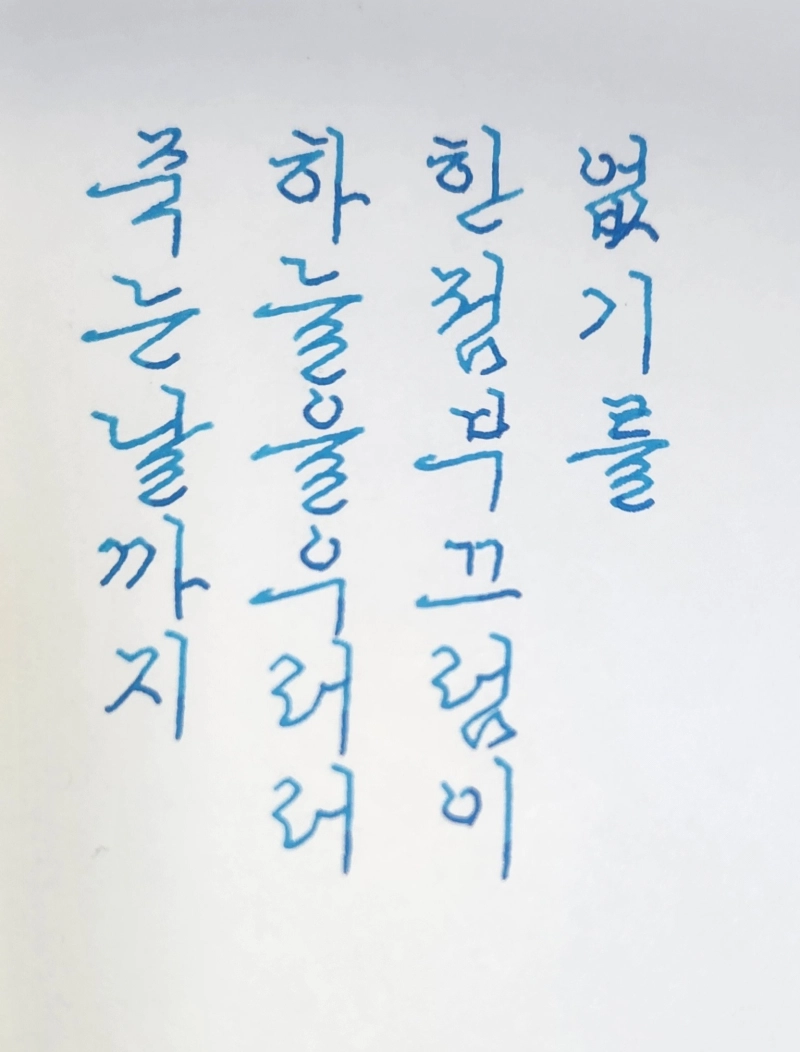 죽는날까지
하늘을우러러
한점부끄럼이
없기를